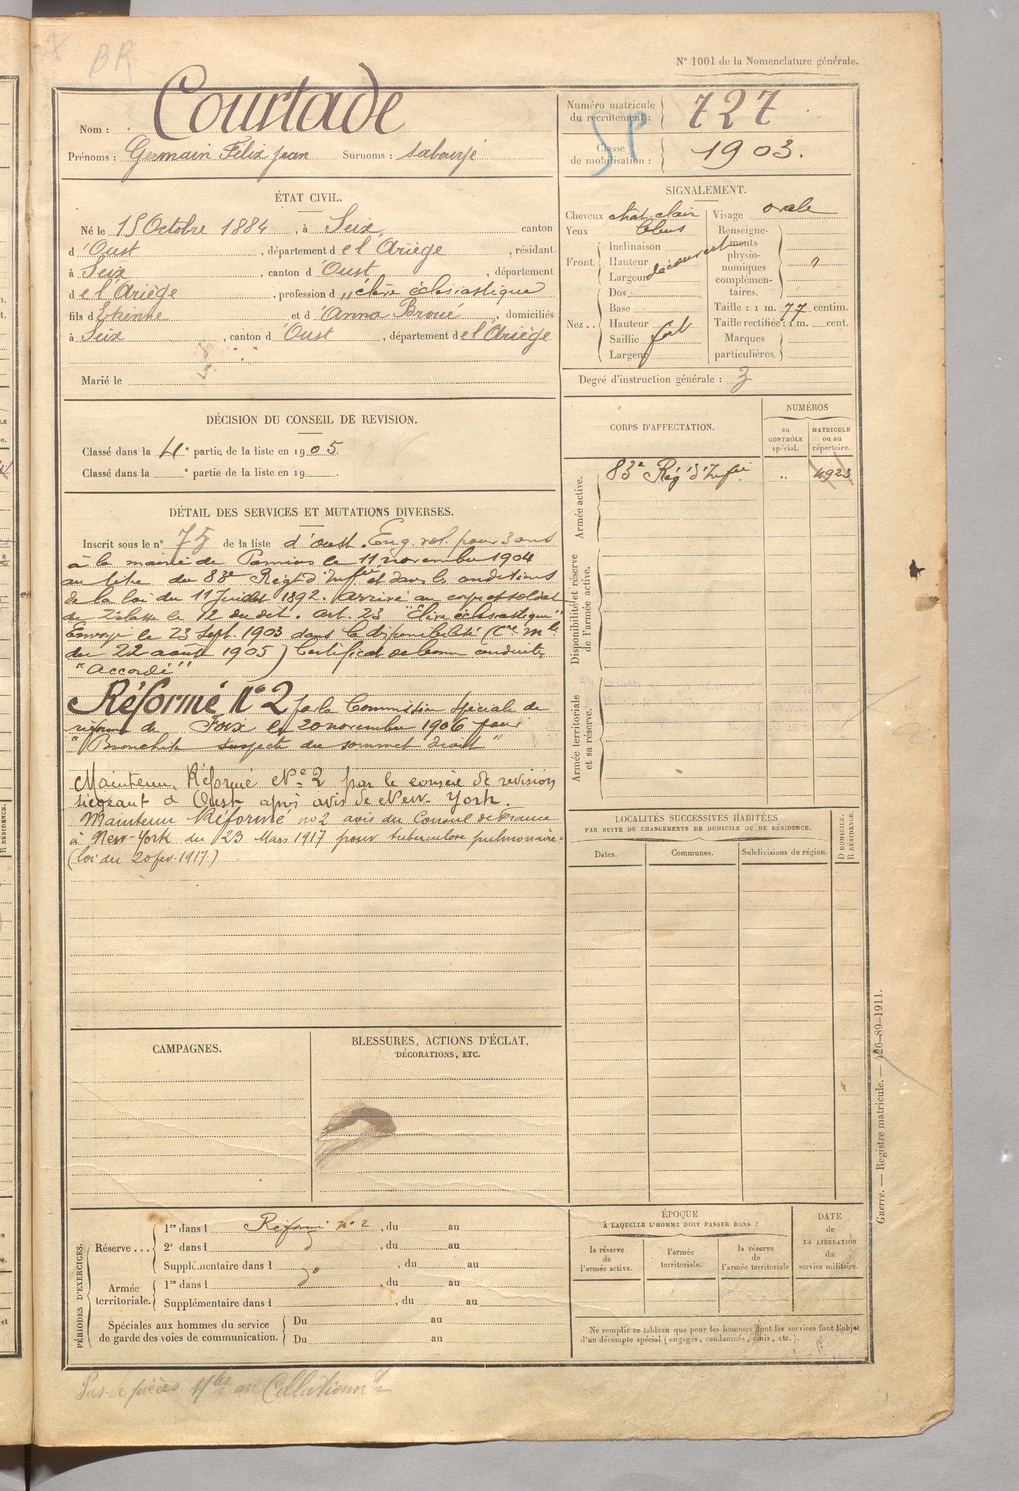 BR
N° 1001 de la Nomenclature générale.
Nom : Courtade
Prénoms : Germain Félix Jean Surnoms :
Numéro matricule du recrutement : 727
SP
Classe de mobilisation : 1903.
ÉTAT CIVIL.
Né le 15 Octobre 1884, à Seix, canton
d'Oust, département de l'Ariège, résidant
à Seix, canton d'Oust, département
de l'Ariège, profession d élève écclésiastique
fils d'Etienne et d'Anna Broué, domiciliés
à Seix, canton d'Oust, département de l'Ariège
Marié le
SIGNALEMENT.
Cheveux chat. clair
Yeux bleus
Front.
Inclinaison
Hauteur découvert
Largeur
Nez..
Dos
Base
Hauteur
Saillie fort
Largeur
Visage ovale
Renseignements physionomiques complémentaires. "
Taille : 1 m. 77 centim.
Taille rectifiée : 1 m. cent.
Marques particulières.
Degré d'instruction générale : 3
DÉCISION DU CONSEIL DE REVISION.
Classé dans la 4e partie de la liste en 1905.
Classé dans la e partie de la liste en 19
DÉTAIL DES SERVICES ET MUTATIONS DIVERSES.
Inscrit sous le n° 75 de la liste d'Oust. Eng. vol. pour 3 ans
à la mairie de Pamiers le 11 novembre 1904
au titre du 83e Régt d'Infie et dans les conditions
de la loi du 11 Juillet 1892. Arrivé au corps et soldat
de 2e classe le 12 du dt. art. 23 "Elève écclésiastique"
Envoyé le 23 Sept. 1905 dans la disponibilité (Cre Mlle
du 22 août 1905) Certificat de bonne conduite
"Accordé"
Réformé N°2 par la Commission spéciale de
réforme de Foix le 20 novembre 1906 pour
"Bronchite suspecte du sommet droit"
Maintenu Réformé N°2 par le conseil de revision
siégeant à Oust après avis de New-York.
Maintenu Réformé n°2 avis du Consul de France
à New-York du 23 Mars 1917 pour tuberculose pulmonaire.
(loi du 20 fev. 1917)
CORPS D'AFFECTATION.
NUMÉROS
au CONTRÔLE spécial.
MATRICULE ou au répertoire.
Armée active.
83e Rég. d'Infie " 4923
Disponibilité et réserve de l'armée active.
Armée territoriale et sa réserve.
LOCALITÉS SUCCESSIVES HABITÉES
PAR SUITE DE CHANGEMENTS DE DOMICILE OU DE RÉSIDENCE.
Dates. Communes. Subdivisions de région.
D DOMICILE. R RÉSIDENCE.
CAMPAGNES.
BLESSURES, ACTIONS D'ÉCLAT,
DÉCORATIONS, ETC.
PÉRIODES D'EXERCICES.
Réserve...
1re dans l Réformé n°2, du au
2e dans l , du au
Supplémentaire dans l , du au
Armée territoriale.
1re dans l , du au
Supplémentaire dans l , du au
Spéciales aux hommes du service
de garde des voies de communication.
Du au
Du au
ÉPOQUE
À LAQUELLE L'HOMME DOIT PASSER DANS :
la réserve de l'armée active.
l'armée territoriale.
la réserve de l'armée territoriale
DATE de LA LIBÉRATION du service militaire.
Ne remplir ce tableau que pour les hommes dont les services font l'objet
d'un décompte spécial (engagés, condamnés, omis, etc.).
Guerre. — Registre matricule. — 426-89-1911.
Pas de pièces